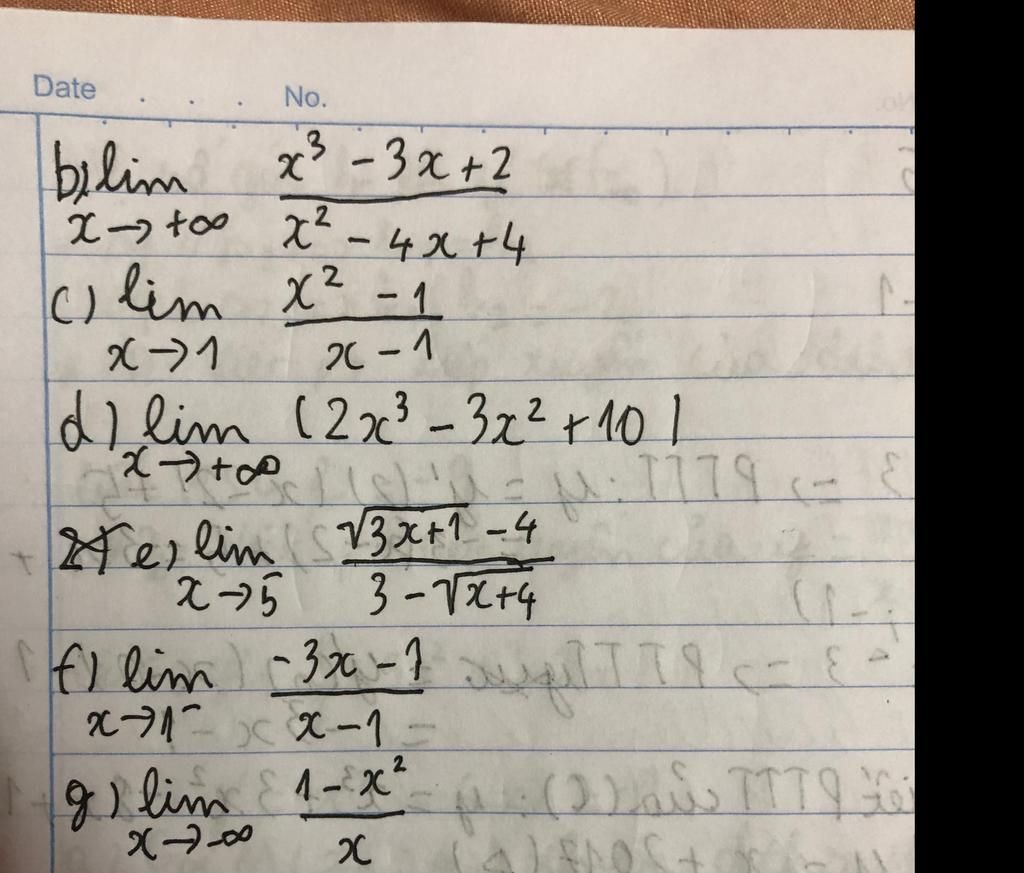 Date . . . No.
b) lim x→+∞ (x³ - 3x + 2)/(x² - 4x + 4)
c) lim x→1 (x² - 1)/(x - 1)
d) lim x→+∞ (2x³ - 3x² + 10)
e) lim x→5 (√(3x+1) - 4)/(3 - √(x+4))
f) lim x→1⁻ (-3x - 1)/(x - 1)
g) lim x→-∞ (1 - x²)/x